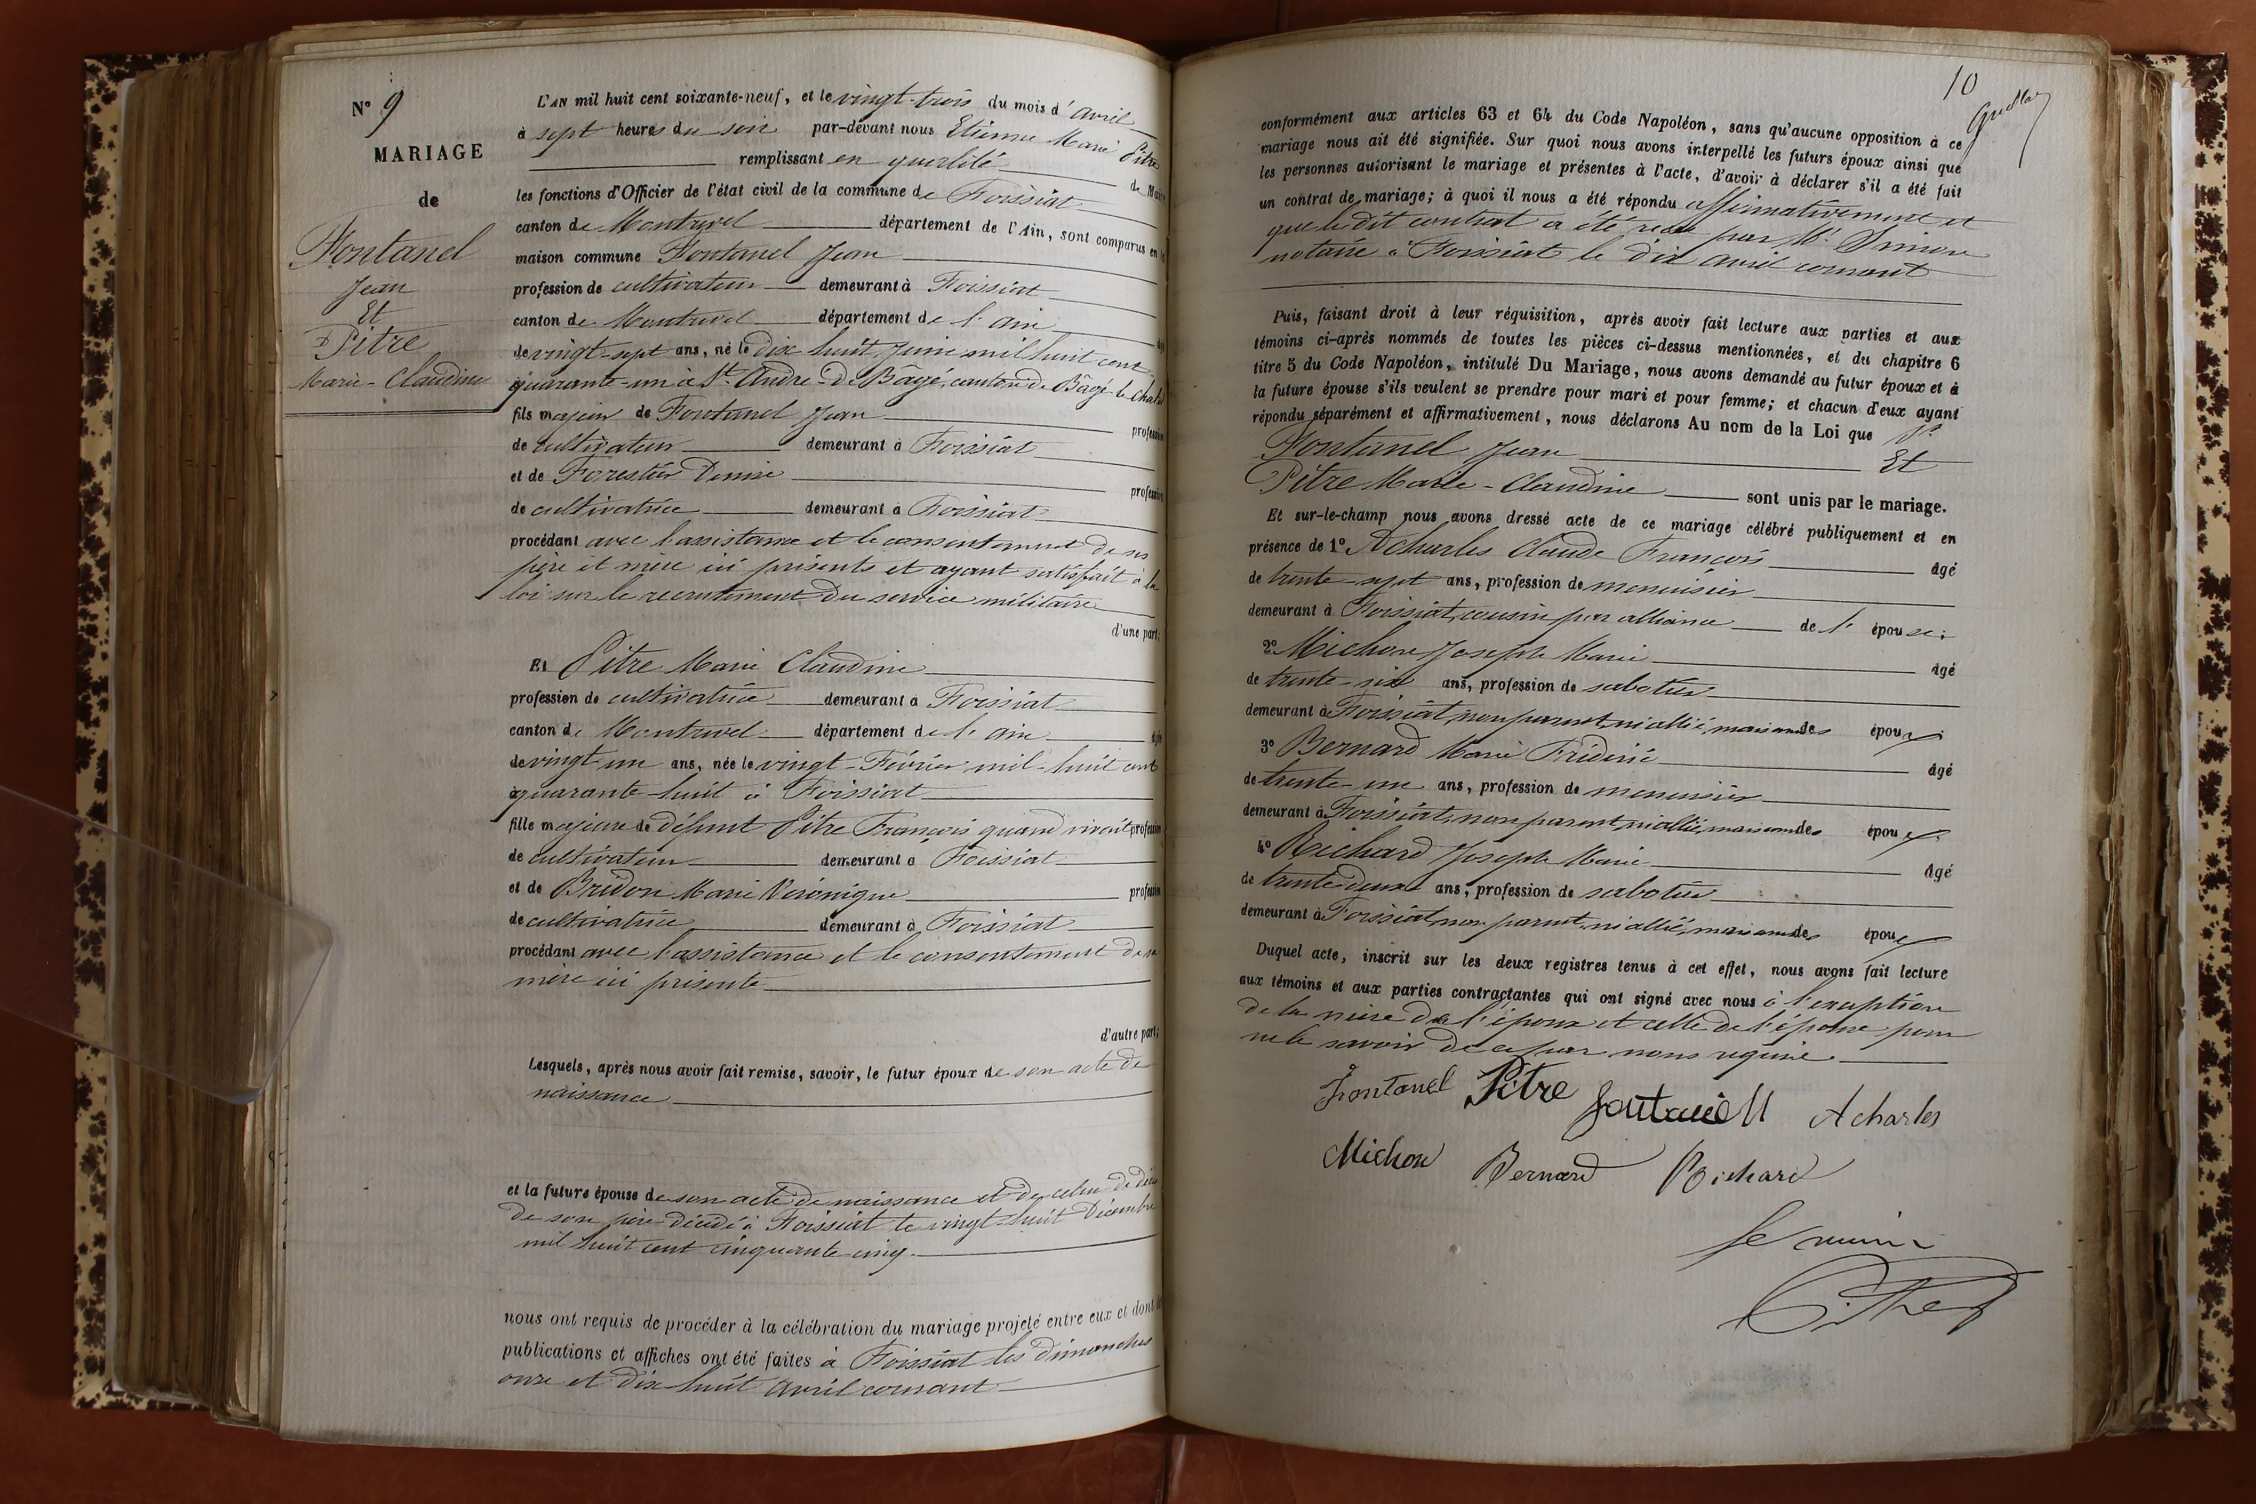 N° 9
MARIAGE
de
Fontanel
Jean
Et
Pitre
Marie-Claudine
L'AN mil huit cent soixante-neuf, et le vingt-trois du mois d'avril
à sept heures du soir par-devant nous Etienne Marie Pitre
remplissant en qualité de Maire
les fonctions d'Officier de l'état civil de la commune de Foissiat
canton de Montrevel département de l'Ain, sont comparus en la
maison commune Fontanel Jean
profession de cultivateur demeurant à Foissiat
canton de Montrevel département de l'ain âgé
de vingt-sept ans, né le dix huit Juin mil huit cent
quarante-un à St. André-de Bâgé, canton de Bâgé-le chatel
fils majeur de Fontanel Jean profession
de cultivateur demeurant à Foissiat
et de Forestier Denise profession
de cultivatrice demeurant à Foissiat
procédant avec l'assistance et le consentement de ses
père et mère ici présents et ayant satisfait à la
loi sur le recrutement du service militaire
d'une part;
Et Pitre Marie Claudine
profession de cultivatrice demeurant à Foissiat
canton de Montrevel département de l'ain âgée
de vingt-un ans, née le vingt-Février mil-huit cent
quarante-huit à Foissiat
fille majeure de défunt Pitre François quand vivait profession
de cultivateur demeurant à Foissiat
et de Bridon Marie Véronique profession
de cultivatrice demeurant à Foissiat
procédant avec l'assistance et le consentement de sa
mère ici présente
d'autre part;
Lesquels, après nous avoir fait remise, savoir, le futur époux de son acte de
naissance
et la future épouse de son acte de naissance et de celui de décès
de son père décédé à Foissiat le vingt-huit Décembre
mil huit cent cinquante cinq.
nous ont requis de procéder à la célébration du mariage projeté entre eux et dont les
publications et affiches ont été faites à Foissiat les dimanches
onze et dix-huit avril courant
10
conformément aux articles 63 et 64 du Code Napoléon, sans qu'aucune opposition à ce
mariage nous ait été signifiée. Sur quoi nous avons interpellé les futurs époux ainsi que
les personnes autorisant le mariage et présentes à l'acte, d'avoir à déclarer s'il a été fait
un contrat de mariage; à quoi il nous a été répondu affirmativement et
que ledit contrat a été reçu par Me. Simon
notaire à Foissiat le dix avril courant
Puis, faisant droit à leur réquisition, après avoir fait lecture aux parties et aux
témoins ci-après nommés de toutes les pièces ci-dessus mentionnées, et du chapitre 6
titre 5 du Code Napoléon, intitulé Du Mariage, nous avons demandé au futur époux et à
la future épouse s'ils veulent se prendre pour mari et pour femme; et chacun d'eux ayant
répondu séparément et affirmativement, nous déclarons Au nom de la Loi que
Fontanel Jean Et
Pitre Marie-Claudine sont unis par le mariage.
Et sur-le-champ nous avons dressé acte de ce mariage célébré publiquement et en
présence de 1° Acharles Claude François âgé
de trente-sept ans, profession de menuisier
demeurant à Foissiat, cousin par alliance de l'épouse;
2° Michon Joseph Marie âgé
de trente-six ans, profession de sabotier
demeurant à Foissiat, non parent, ni allié, mais ami des époux;
3° Bernard Marie Frédéric âgé
de trente-un ans, profession de menuisier
demeurant à Foissiat, non parent, ni allié, mais ami des époux;
4° Richard Joseph Marie âgé
de trente-deux ans, profession de sabotier
demeurant à Foissiat, non parent, ni allié, mais ami des époux
Duquel acte, inscrit sur les deux registres tenus à cet effet, nous avons fait lecture
aux témoins et aux parties contractantes qui ont signé avec nous à l'exception
de la mère de l'époux et celle de l'épouse pour
ne le savoir de ce par nous requise
Fontanel Pitre Acharles
Michon Bernard Richard
le maire
Pitre